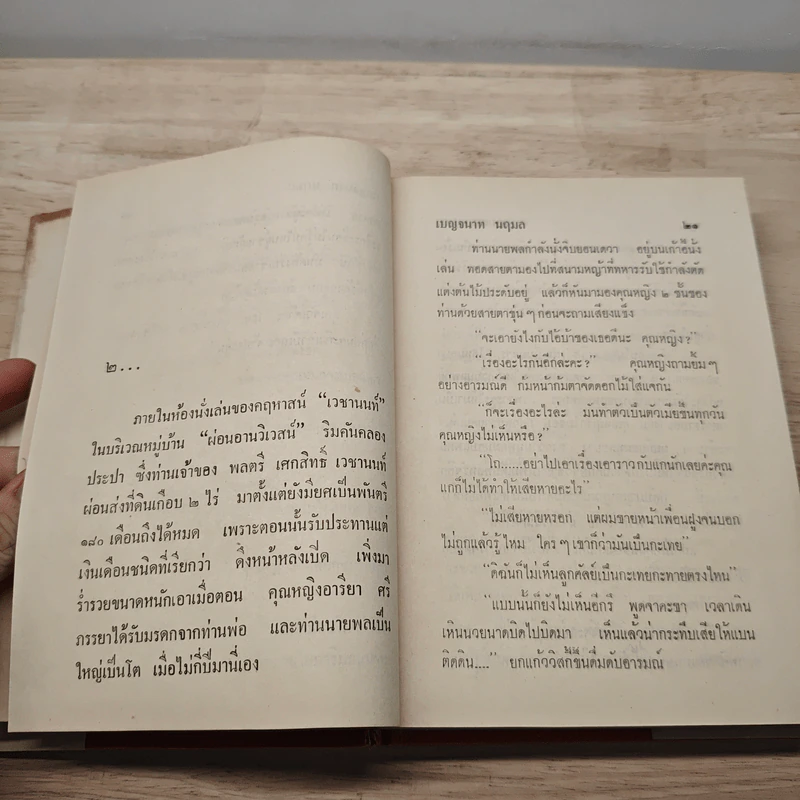 ๒...
ภายในห้องนั่งเล่นของคฤหาสน์ “เวชานนท์”
ในบริเวณหมู่บ้าน “ผ่อนอานวิเวสน์” ริมคันคลอง
ประปา ซึ่งท่านเจ้าของ พลตรี เศกสิทธิ์ เวชานนท์
ผ่อนส่งที่ดินเกือบ ๒ ไร่ มาตั้งแต่ยังมียศเป็นพันตรี
๑๘๐ เดือนถึงได้หมด เพราะตอนนั้นรับประทานแต่
เงินเดือนชนิดที่เรียกว่า ดึงหน้าหลังเปิด เพิ่งมา
ร่ำรวยขนาดหนักเอาเมื่อตอน คุณหญิงอารียา ศรี
ภรรยาได้รับมรดกจากท่านพ่อ และท่านนายพลเป็น
ใหญ่เป็นโต เมื่อไม่กี่ปีมานี่เอง
เบญจนาท นฤมล ๒๑
ท่านนายพลกำลังนั่งจิบยอนเดวา อยู่บนเก้าอี้นั่ง
เล่น ทอดสายตามองไปที่สนามหญ้าที่ทหารรับใช้กำลังตัด
แต่งต้นไม้ประดับอยู่ แล้วก็หันมามองคุณหญิง ๒ ชั้นของ
ท่านด้วยสายตาขุ่น ๆ ก่อนจะถามเสียงแข็ง
“จะเอายังไงกับไอ้บ้าของเธอดีนะ คุณหญิง ?”
“เรื่องอะไรกันอีกล่ะคะ ?” คุณหญิงถามยิ้ม ๆ
อย่างอารมณ์ดี ก้มหน้าก้มตาจัดดอกไม้ใส่แจกัน
“ก็จะเรื่องอะไรล่ะ มันทำตัวเป็นตัวเมียขึ้นทุกวัน
คุณหญิงไม่เห็นหรือ ?”
“โถ......อย่าไปเอาเรื่องเอาราวกับแกนักเลยค่ะคุณ
แกก็ไม่ได้ทำให้เสียหายอะไร”
“ไม่เสียหายหรอก แต่ผมขายหน้าเพื่อนฝูงจนบอก
ไม่ถูกแล้วรู้ไหม ใคร ๆ เขาก็ว่ามันเป็นกะเทย”
“ดิฉันก็ไม่เห็นลูกศัลย์เป็นกะเทยกะทายตรงไหน”
“แบบนั้นก็ยังไม่เห็นอีกรึ พูดจาคะขา เวลาเดิน
เหินนวยนาดบิดไปบิดมา เห็นแล้วน่ากระทืบเสียให้แบน
ติดดิน....” ยกแก้ววิสกี้ขึ้นดื่มดับอารมณ์